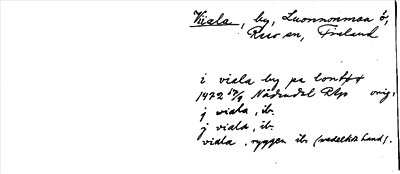 Viala, by, Luonnonmaa ö,
Rusko sn, Finland
i viala by pa lontöö
1472 17/8 Nådendal Rkp orig,
j viala, ib.
j viala, ib.
viala, ryggen ib. (medeltida hand).